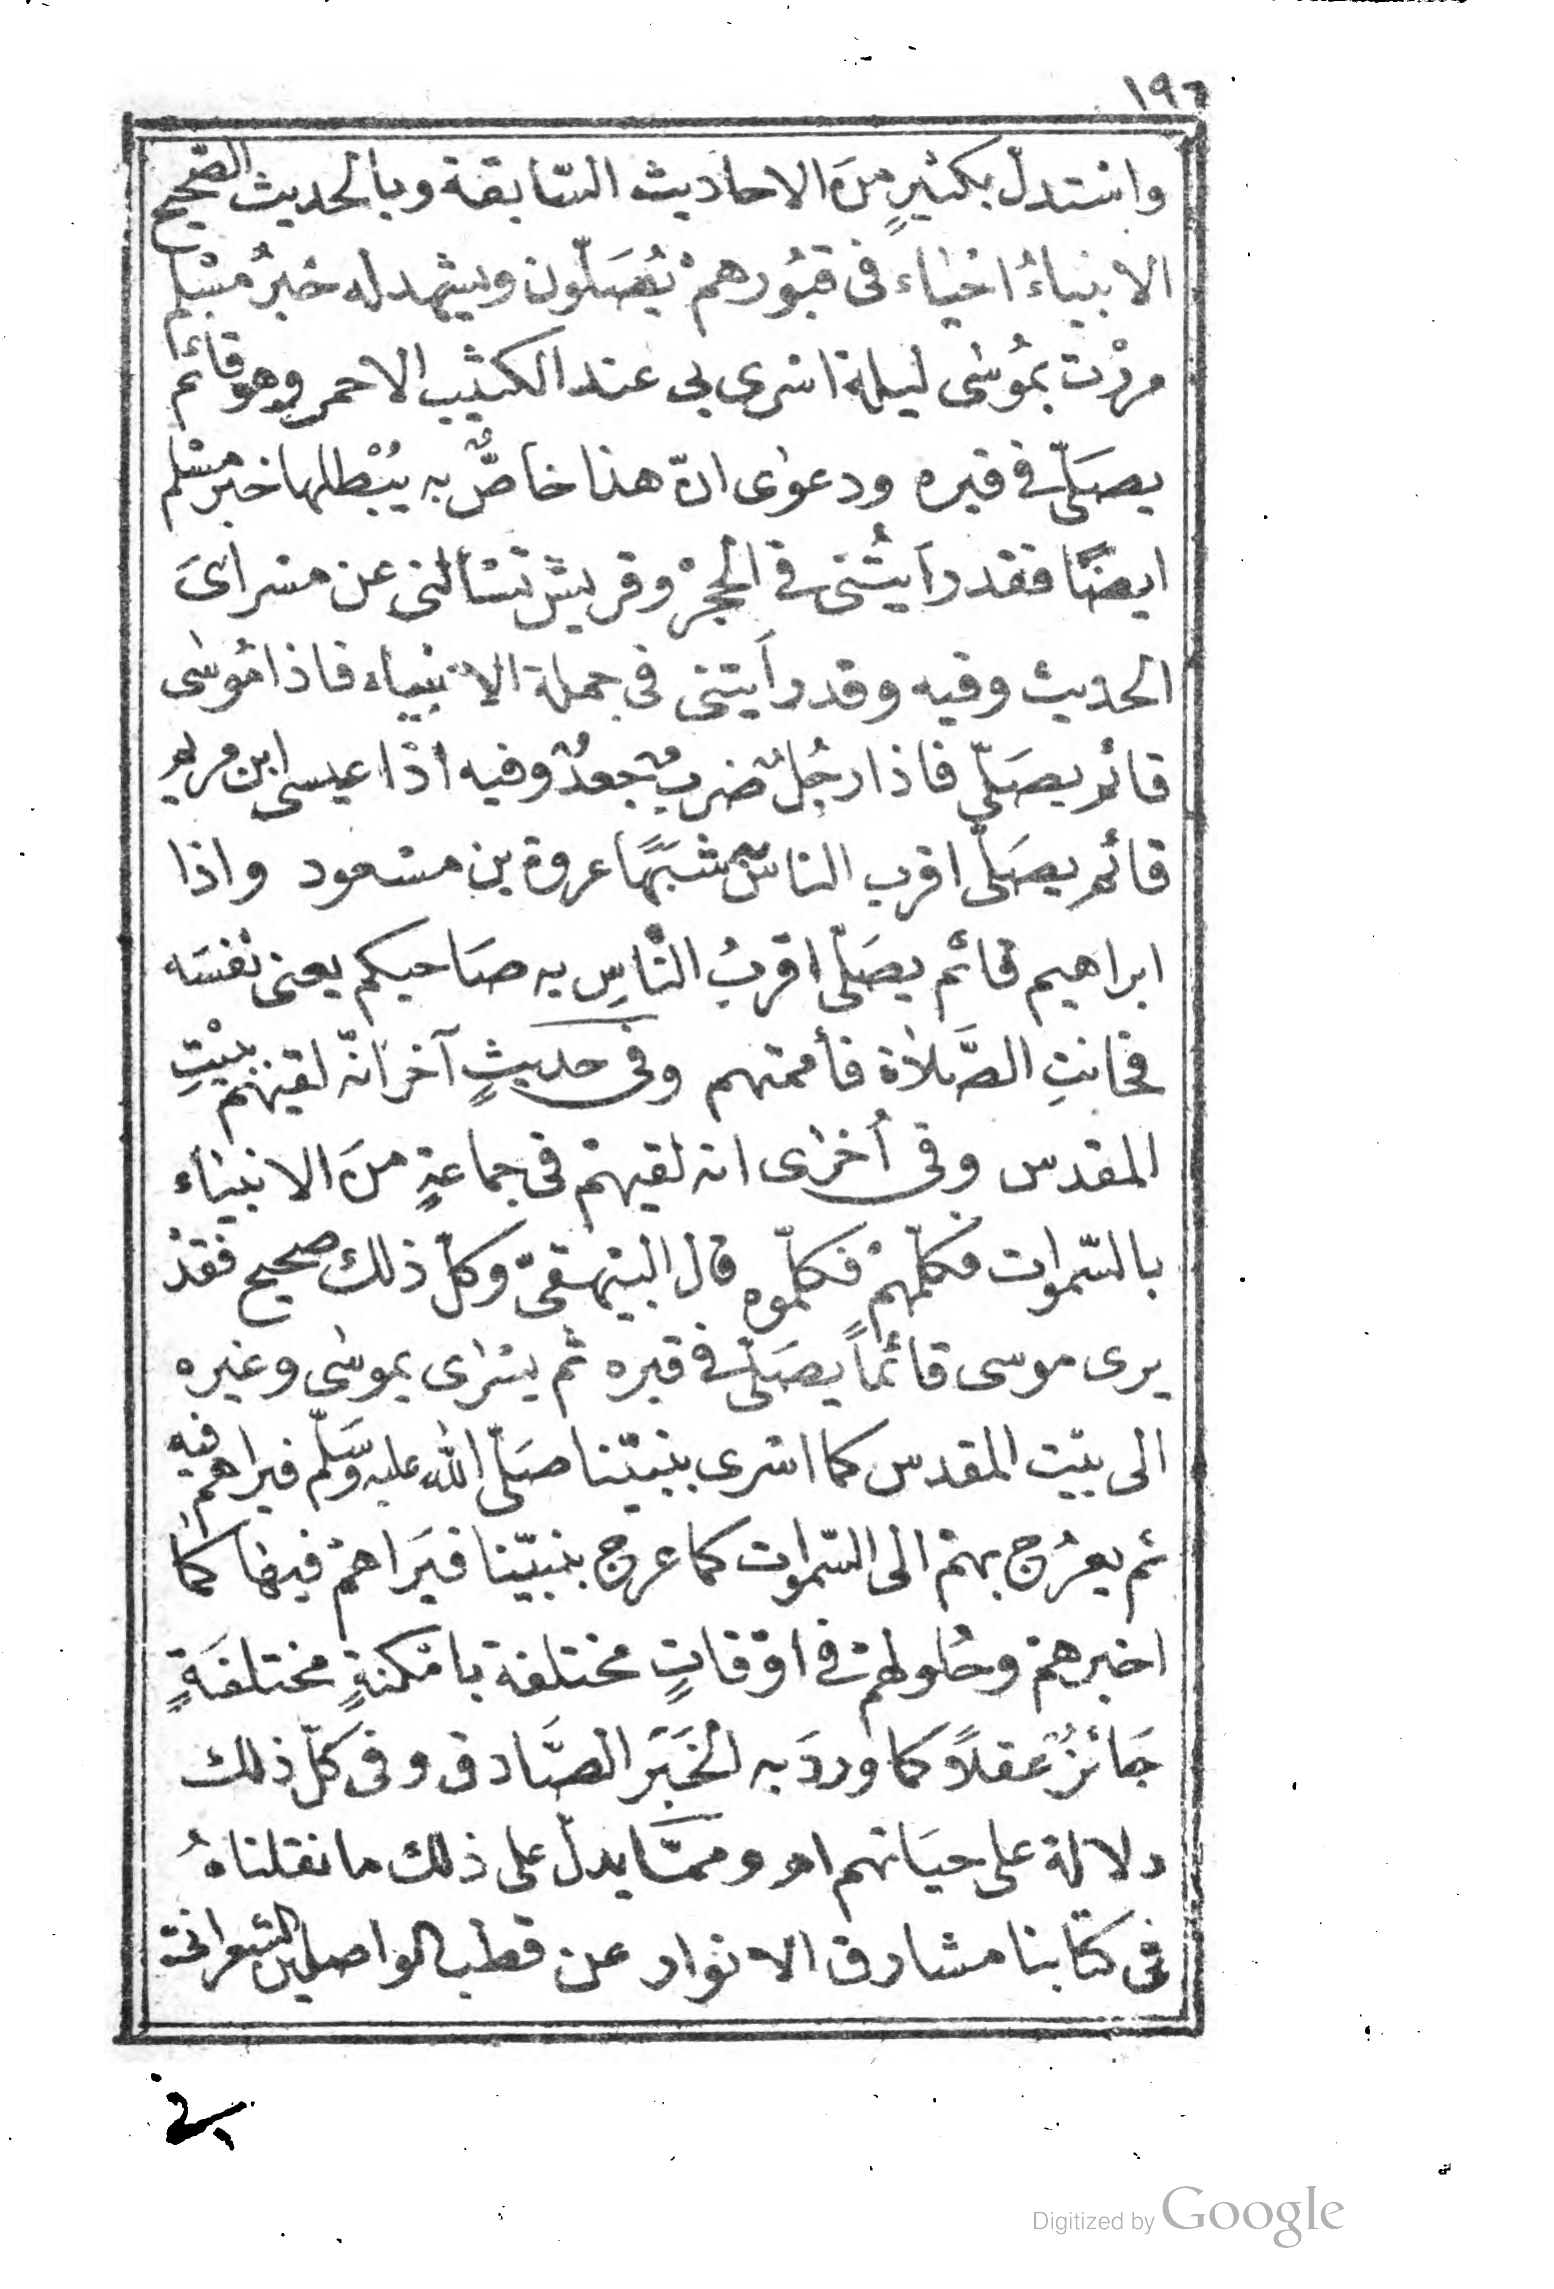 ١٩٦
واستدل بكثيرٍ منَ الاحاديث السّابقة وبالحديث الصّحيح
الانبياءُ احياء فى قبُورهمْ يُصَلّون ويشهد له خبرُ مسْلم
مررْت بمُوسٰى ليلة اسْرى بى عند الكثيب الاحمر وهو قائم
يصَلّى فى قبره ودعوٰى انّ هذا خاصٌّ به يُبْطلها خبر مسْلم
ايضًا فقد رأيتُنى فى الحجرْ وقريش تسْألنى عن مسراىَ
الحديث وفيه وقد رأيتنى فى جملة الانبياء فاذا مُوسٰى
قائم يصَلّى فاذا رجُلٌ ضربٌ جعدٌ وفيه اذا عيسى ابن مريم
قائم يصَلّى اقرب الناس شبَهًا عروة بن مسْعود واذا
ابراهيم قائم يصَلّى اقربُ النّاسِ به صَاحبكم يعنى نفسَه
فحانتِ الصَّلاة فأممتهم وفى حديثٍ آخر انّه لقيهم ببيْتِ
المقدس وفى أخرٰى انه لقيهمْ فى جماعةٍ منَ الانبياء
بالسّموات فكلّمهُمْ فكلّموه قال البيْهقىّ وكلّ ذلك صحيح فقدْ
يرى موسى قائماً يصَلّى فى قبره ثم يسْرٰى بموسٰى وغيره
الى بيْت المقدس كما اسْرى بنبيّنا صَلّى الله عليه وسَلّم فيراهم فيه
ثم يعرُج بهمْ الى السّموات كما عرج بنبيّنا فيَراهمْ فيها كما
اخبرهمْ وحُلولهمْ فى اوْقاتٍ مختلفة بامْكنةٍ مختلفَةٍ
جَائزٌ عقلاً كما وردَ به الخَبَر الصَّادق وفى كلّ ذلك
دلالة على حيَاتهم اه وممّا يدلّ على ذلك ما نقلناهُ
فى كتابنا مشارق الانوار عن قطب الواصلين الشعرانىّ
فى
Digitized by Google